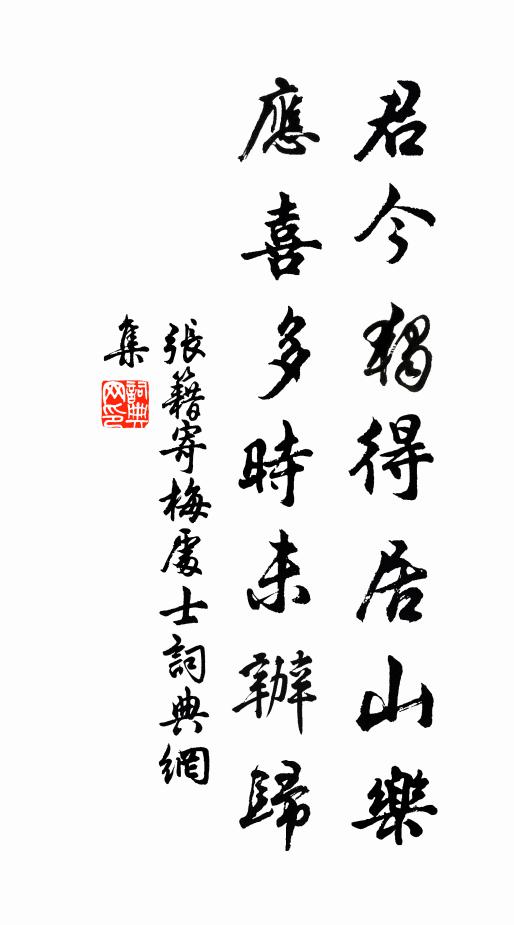 君今獨得居山樂
應喜多時未辦歸
張籍寄梅處士詞典網
集
詞典網印